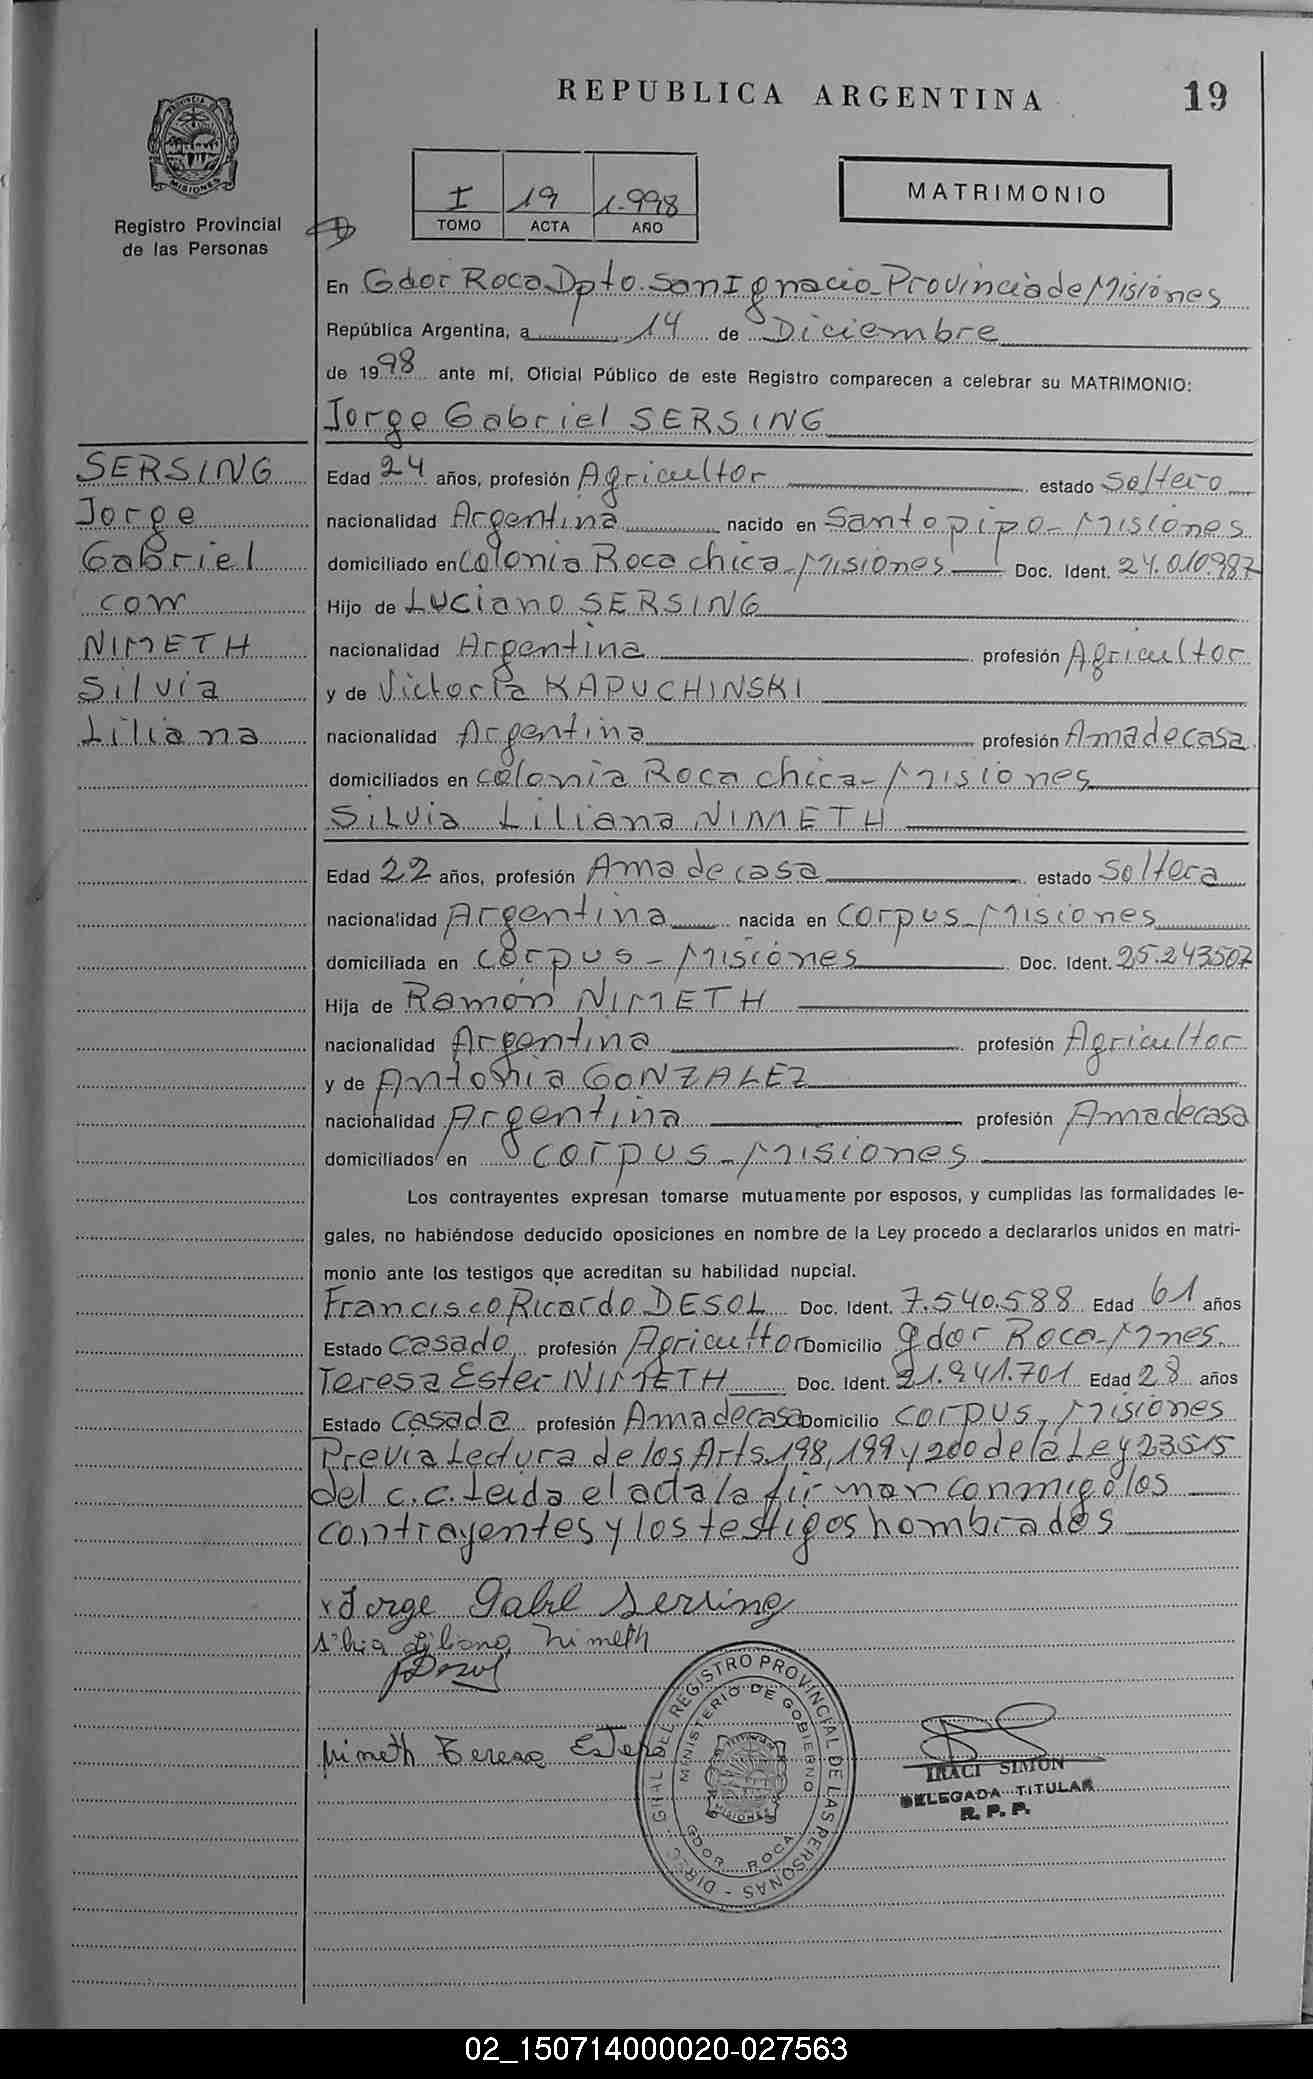 REPUBLICA ARGENTINA
19
PROVINCIA DE MISIONES
Registro Provincial
de las Personas
I 19 1.998
TOMO ACTA AÑO
MATRIMONIO
En Gdor Roca Dpto. San Ignacio - Provincia de Misiones
República Argentina, a 14 de Diciembre
de 1998 ante mí, Oficial Público de este Registro comparecen a celebrar su MATRIMONIO:
Jorge Gabriel SERSING
SERSING
Jorge
Gabriel
con
NIMETH
Silvia
Liliana
Edad 24 años, profesión Agricultor estado soltero
nacionalidad Argentina nacido en Santo pipo - Misiones
domiciliado en Colonia Roca chica - Misiones Doc. Ident. 24.010.987
Hijo de Luciano SERSING
nacionalidad Argentina profesión Agricultor
y de Victoria KAPUCHINSKI
nacionalidad Argentina profesión Ama de casa
domiciliados en colonia Roca chica - Misiones
Silvia Liliana NIMETH
Edad 22 años, profesión Ama de casa estado soltera
nacionalidad Argentina nacida en corpus - Misiones
domiciliada en corpus - Misiones Doc. Ident. 25.243.507
Hija de Ramón NIMETH
nacionalidad Argentina profesión Agricultor
y de Antonia GONZALEZ
nacionalidad Argentina profesión Ama de casa
domiciliados en corpus - Misiones
Los contrayentes expresan tomarse mutuamente por esposos, y cumplidas las formalidades le-
gales, no habiéndose deducido oposiciones en nombre de la Ley procedo a declararlos unidos en matri-
monio ante los testigos que acreditan su habilidad nupcial.
Francisco Ricardo DESOL Doc. Ident. 7.540.588 Edad 61 años
Estado casado profesión Agricultor Domicilio gdor Roca - Mnes.
Teresa Ester NIMETH Doc. Ident. 21.941.701 Edad 28 años
Estado casada profesión Ama de casa Domicilio corpus - Misiones
Previa Lectura de los Arts. 198, 199 y 200 de la Ley 23515
del c.c. leida el acta la firman conmigo los
contrayentes y los testigos nombrados
x Jorge Gabriel Sersing
Silvia Liliana Nimeth
Desol
Nimeth Teresa Ester
DIREC. GRAL. DEL REGISTRO PROVINCIAL DE LAS PERSONAS -
MINISTERIO DE GOBIERNO
MISIONES
GDOR. ROCA
IRACI SIMON
DELEGADA TITULAR
R. P. P.
02_150714000020-027563